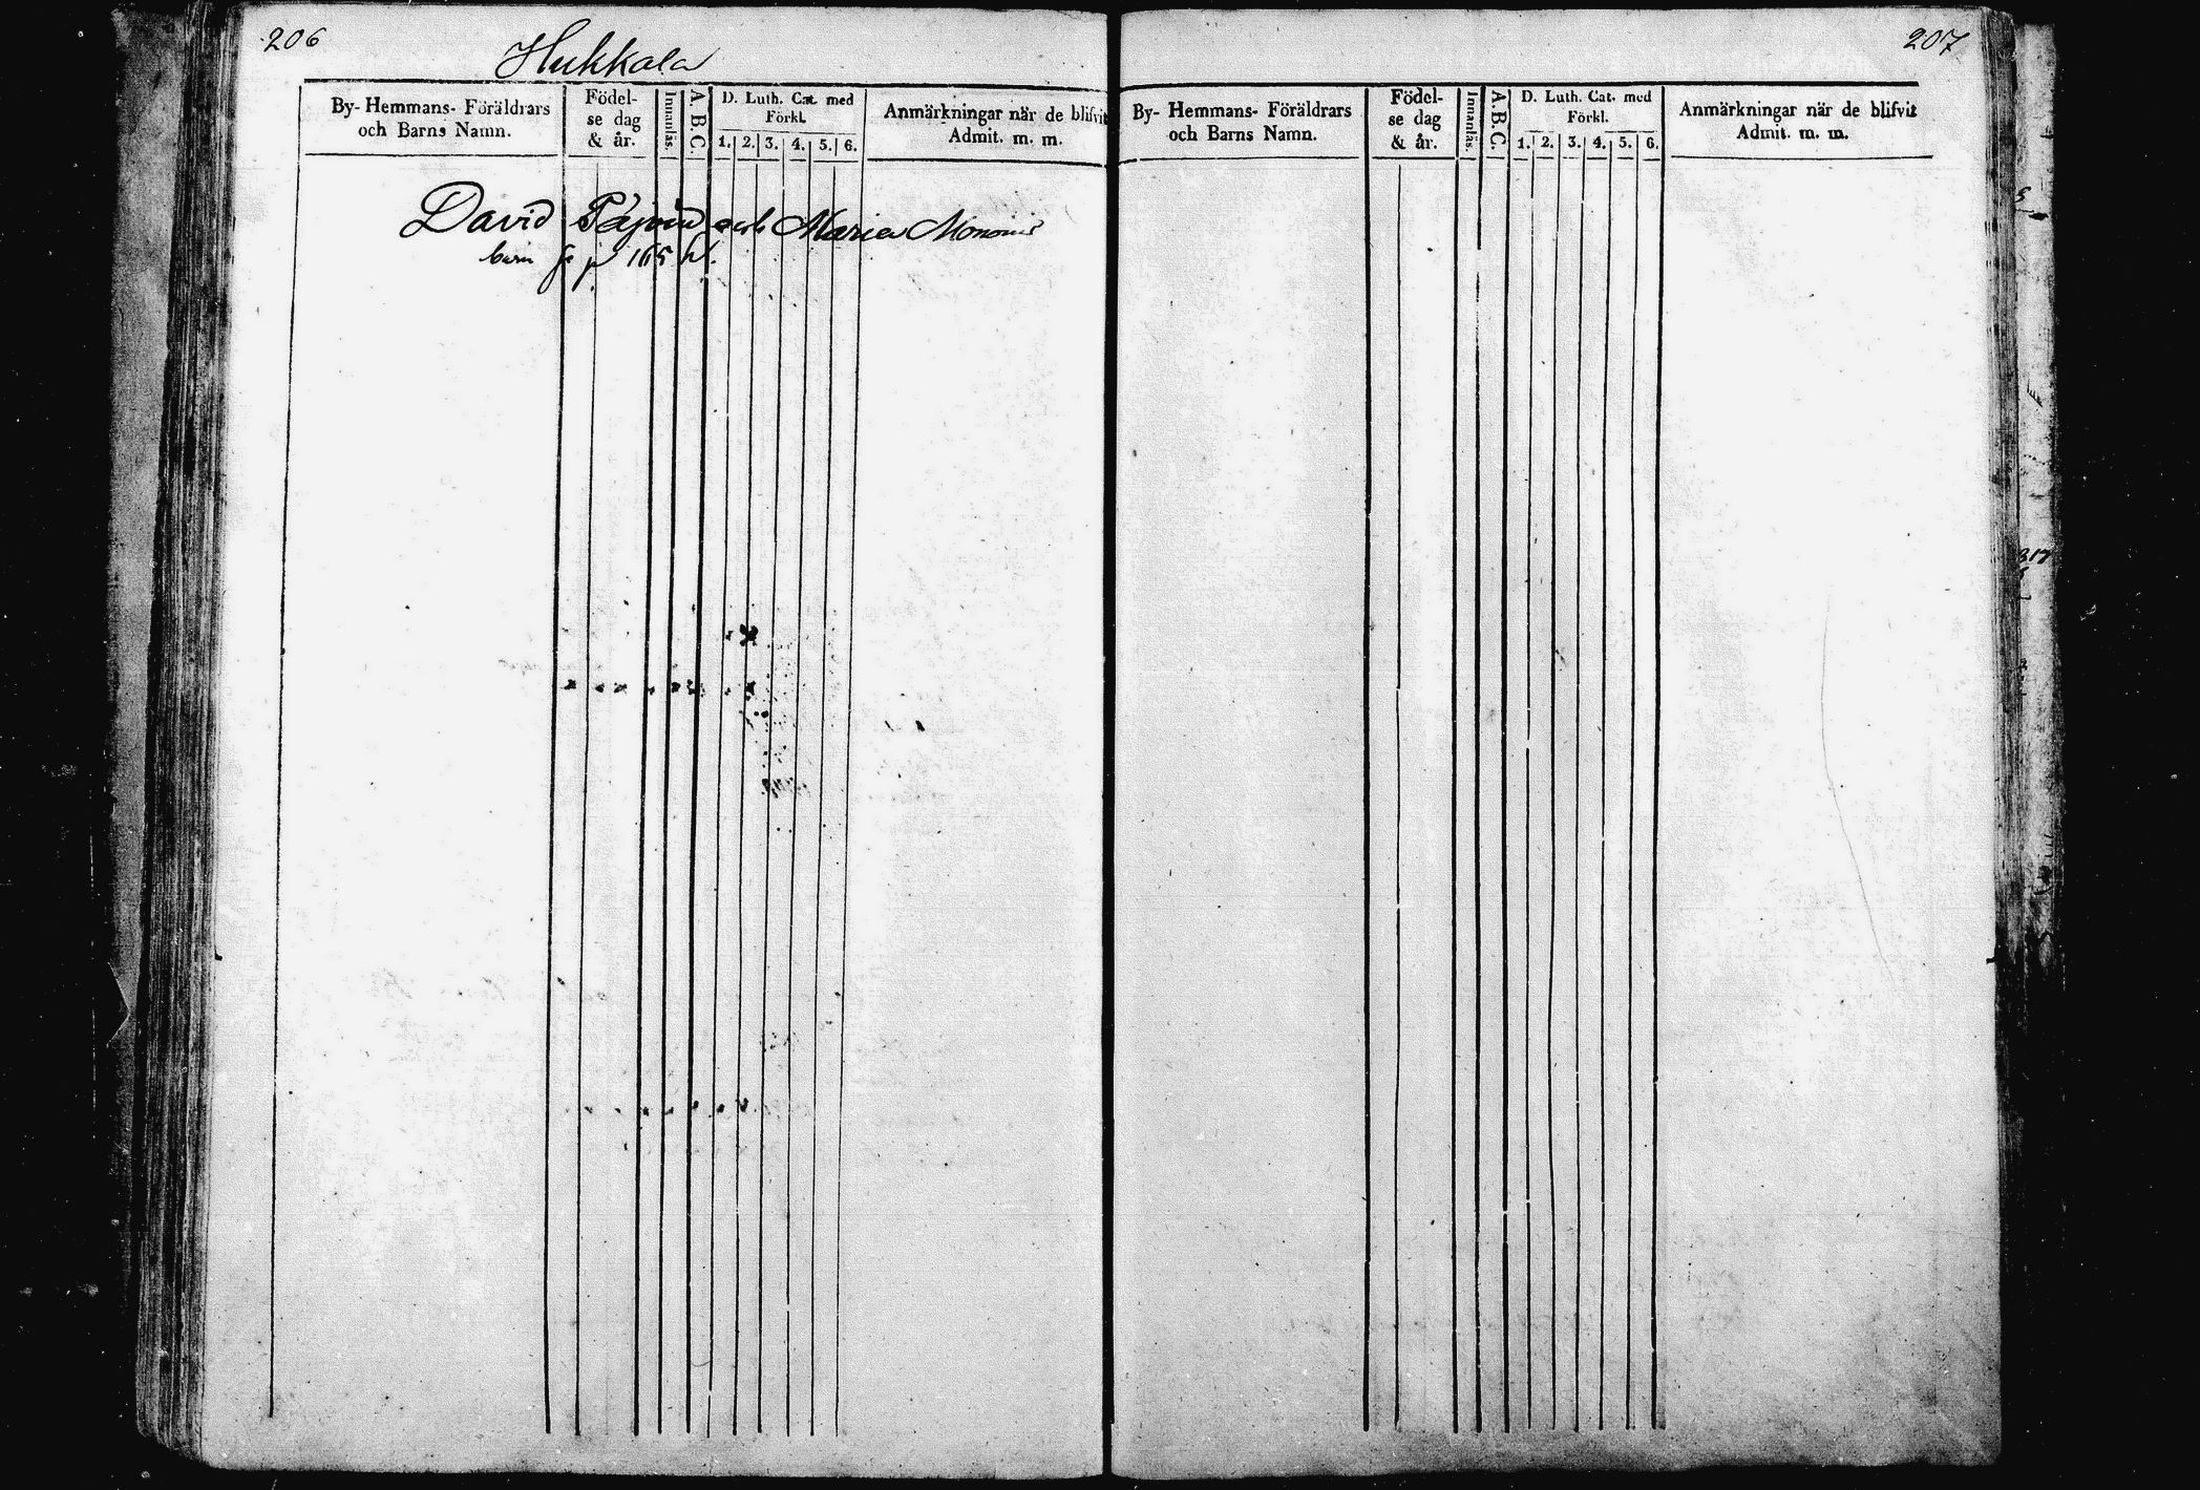 206
Hukkala
By- Hemmans- Föräldrars och Barns Namn.
Födel-se dag & år.
Innanläs.
A.B.C.
D. Luth. Cat. med Förkl.
1. 2. 3. 4. 5. 6.
Anmärkningar när de blifvit Admit. m. m.
David och Maria
barn 165
207
By- Hemmans- Föräldrars och Barns Namn.
Födel-se dag & år.
Innanläs.
A.B.C.
D. Luth. Cat. med Förkl.
1. 2. 3. 4. 5. 6.
Anmärkningar när de blifvit Admit. m. m.